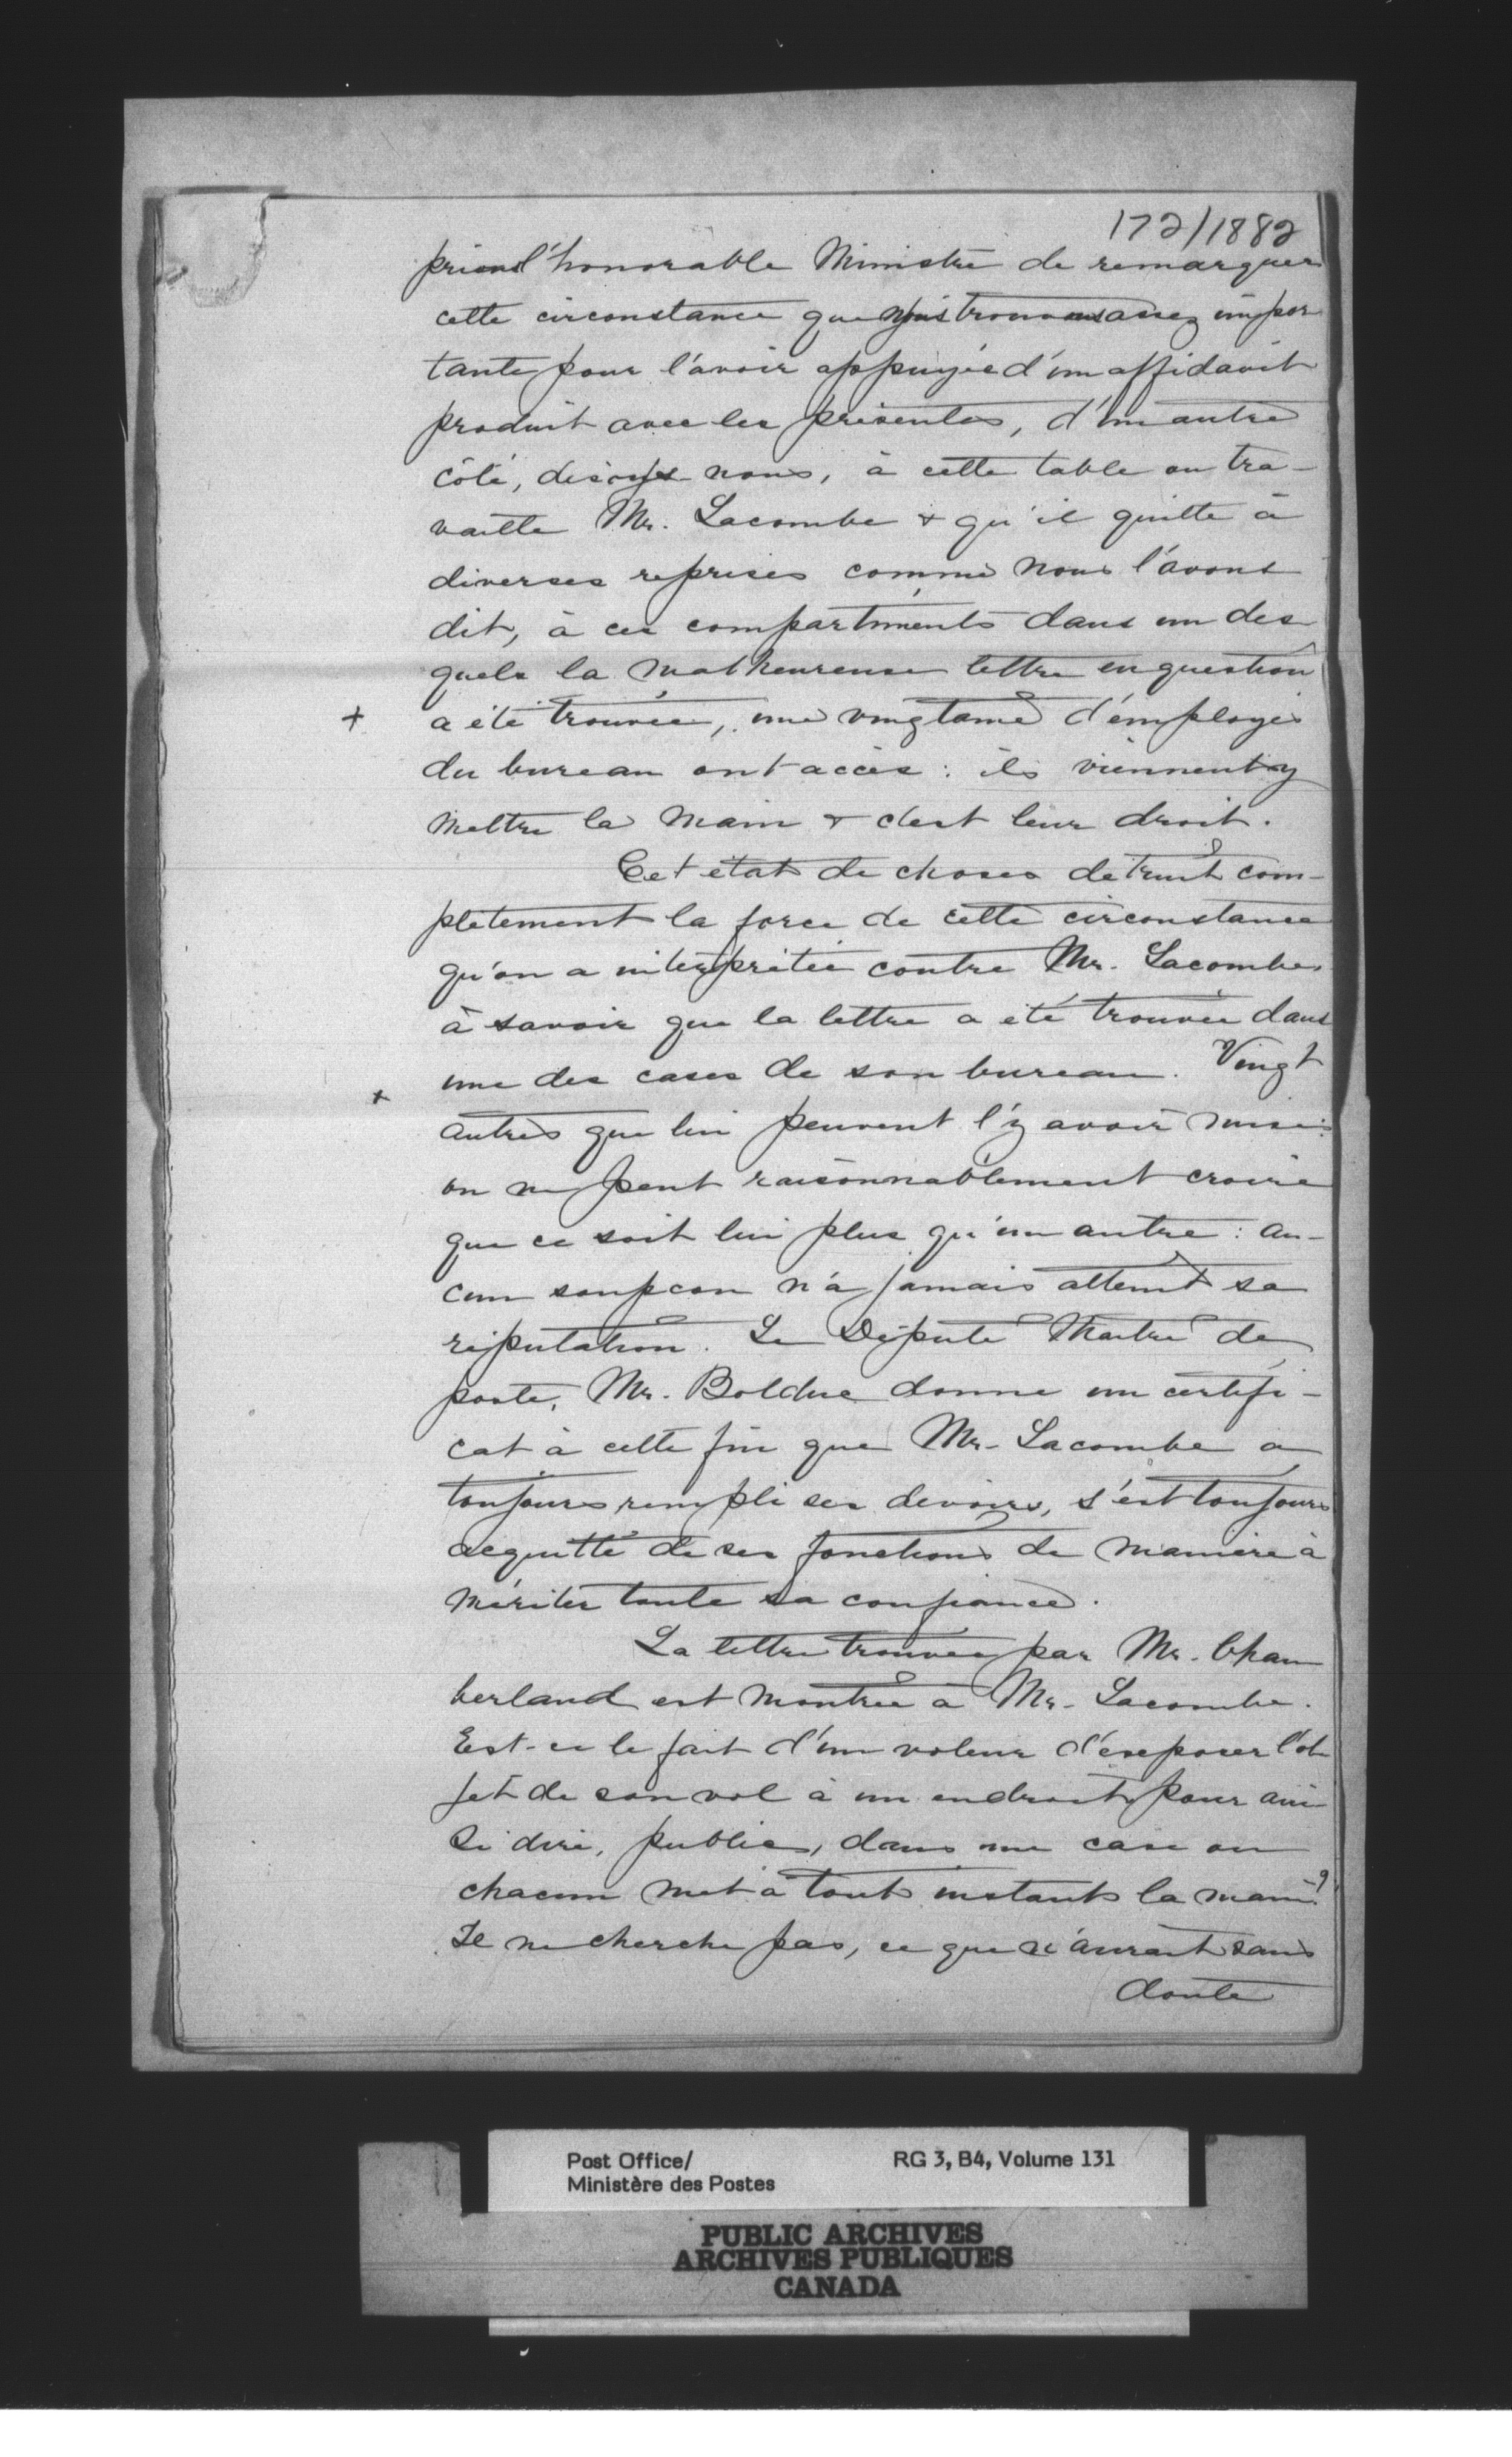 172/1882
prions l'honorable Ministre de remarquer
cette circonstance que nous trouvons assez impor
tante pour l'avoir appuyée d'un affidavit
produit avec les présentes, d'un autre
côté, disons-nous, à cette table ou tra-
vaille Mr. Lacombe & qu'il quitte à
diverses reprises comme nous l'avons
dit, à ces compartiments dans un des
quels la malheureuse lettre en question
+ a été trouvée, une vingtaine d'employés
du bureau ont accès : ils viennent y
mettre la main & c'est leur droit.
Cet état de choses détruit com-
plètement la force de cette circonstance
qu'on a interprétée contre Mr. Lacombe
à savoir que la lettre a été trouvée dans
+ une des cases de son bureau. Vingt
autres que lui peuvent l'y avoir mise :
on ne peut raisonnablement croire
que ce soit lui plus qu'un autre : au-
cun soupçon n'a jamais atteint sa
réputation. Le Député Maître de
poste, Mr. Bolduc donne un certifi-
cat à cette fin que Mr. Lacombe a
toujours rempli ses devoirs, s'est toujours
acquitté de ses fonctions de manière à
mériter toute sa confiance.
La lettre trouvée par Mr. Cham
berland est montrée à Mr. Lacombe.
Est-ce le fait d'un voleur d'exposer l'ob
jet de son vol à un endroit pour ain
si dire, public, dans une case ou
chacun met à tout instant la main ?
Il ne cherche pas, ce que n'aurait sans
doute
Post Office/
Ministère des Postes
RG 3, B4, Volume 131
PUBLIC ARCHIVES
ARCHIVES PUBLIQUES
CANADA